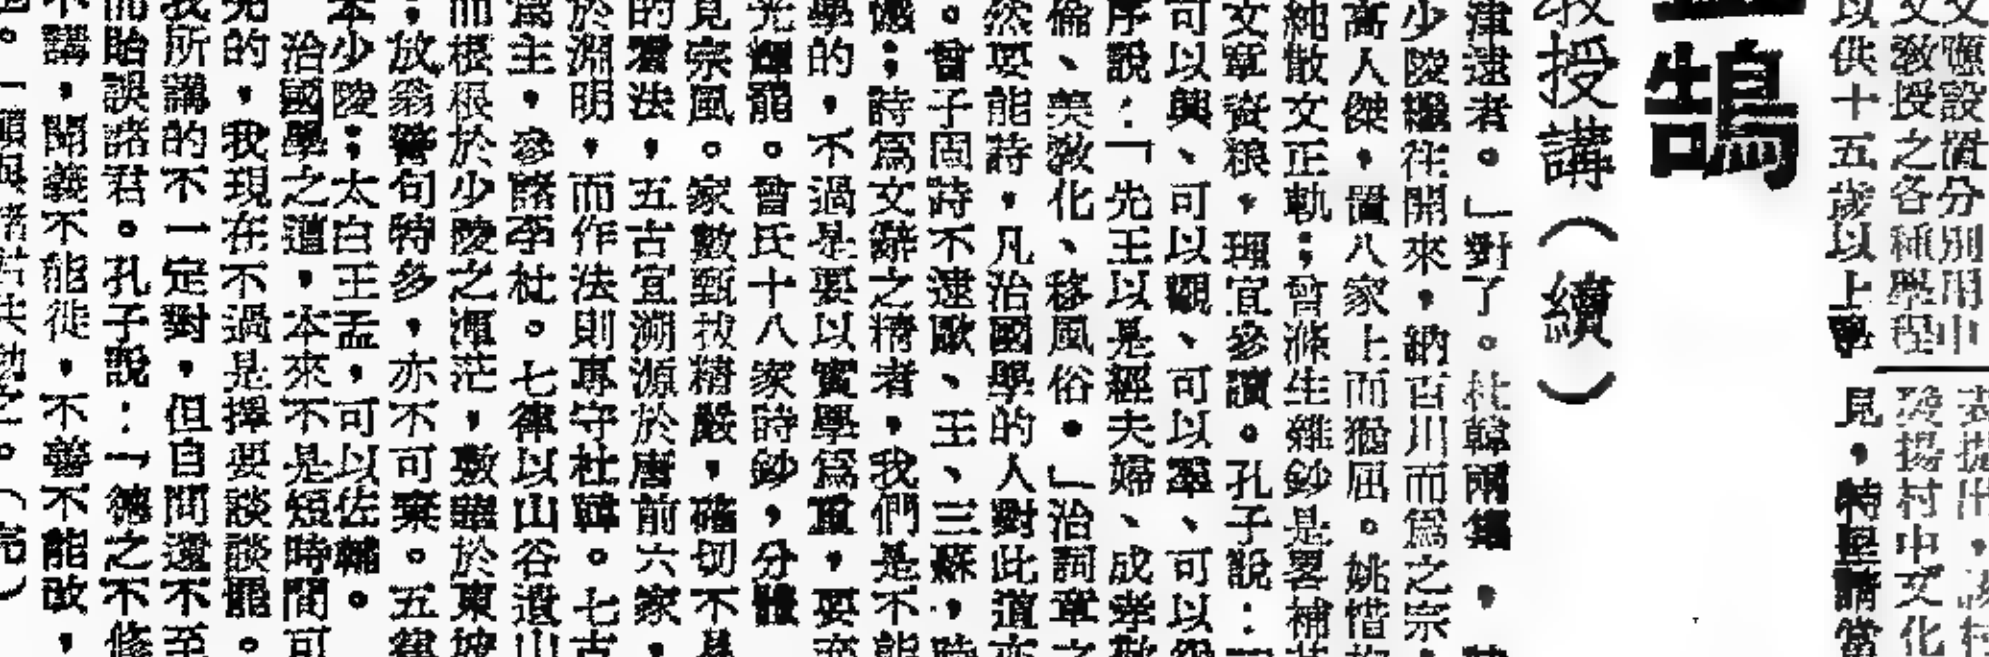 文應設置分別用中
文敎授之各種學程
以供十五歲以上
表提出，該村
發揚村中文化
見，特 請當
鵠
授講（續）
津逮者。」對了。杜韓兩集，
少陵繼往開來，納百川而爲之宗，
高人傑，置八家上而猶屈。姚惜
純散文正軌；曾滌生雜鈔是畧補
文章資粮，理宜參讀。孔子說：
可以興、可以觀、可以羣、可以怨
序說：「先王以是經夫婦、成孝敬
倫、美敎化、移風俗。」治詞章之
然要能詩，凡治國學的人對此道亦
。曾子固詩不逮歐、王、三蘇，時
憾；詩爲文辭之精者，我們是不能
學的，不過是要以實學爲重，要
光輝罷。曾氏十八家詩鈔，分體
見宗風。家數甄拔精嚴，確切不易
的看法，五古宜溯源於唐前六家，
於淵明，而作法則專守杜韓。七古
爲主，參諸李杜。七律以山谷遺山
而根根於少陵之渾茫，敷 於東坡
；放翁警句特多，亦不可棄。五律
本少陵；太白王孟，可以佐輔。
治國學之道，本來不是短時間可
完的，我現在不過是擇要談談罷。
我所講的不一定對，但自問還不至
而貽誤諸君。孔子說：「德之不修
不講，聞義不能徙，不善不能改，
也。」願與諸君共勉之。（完）